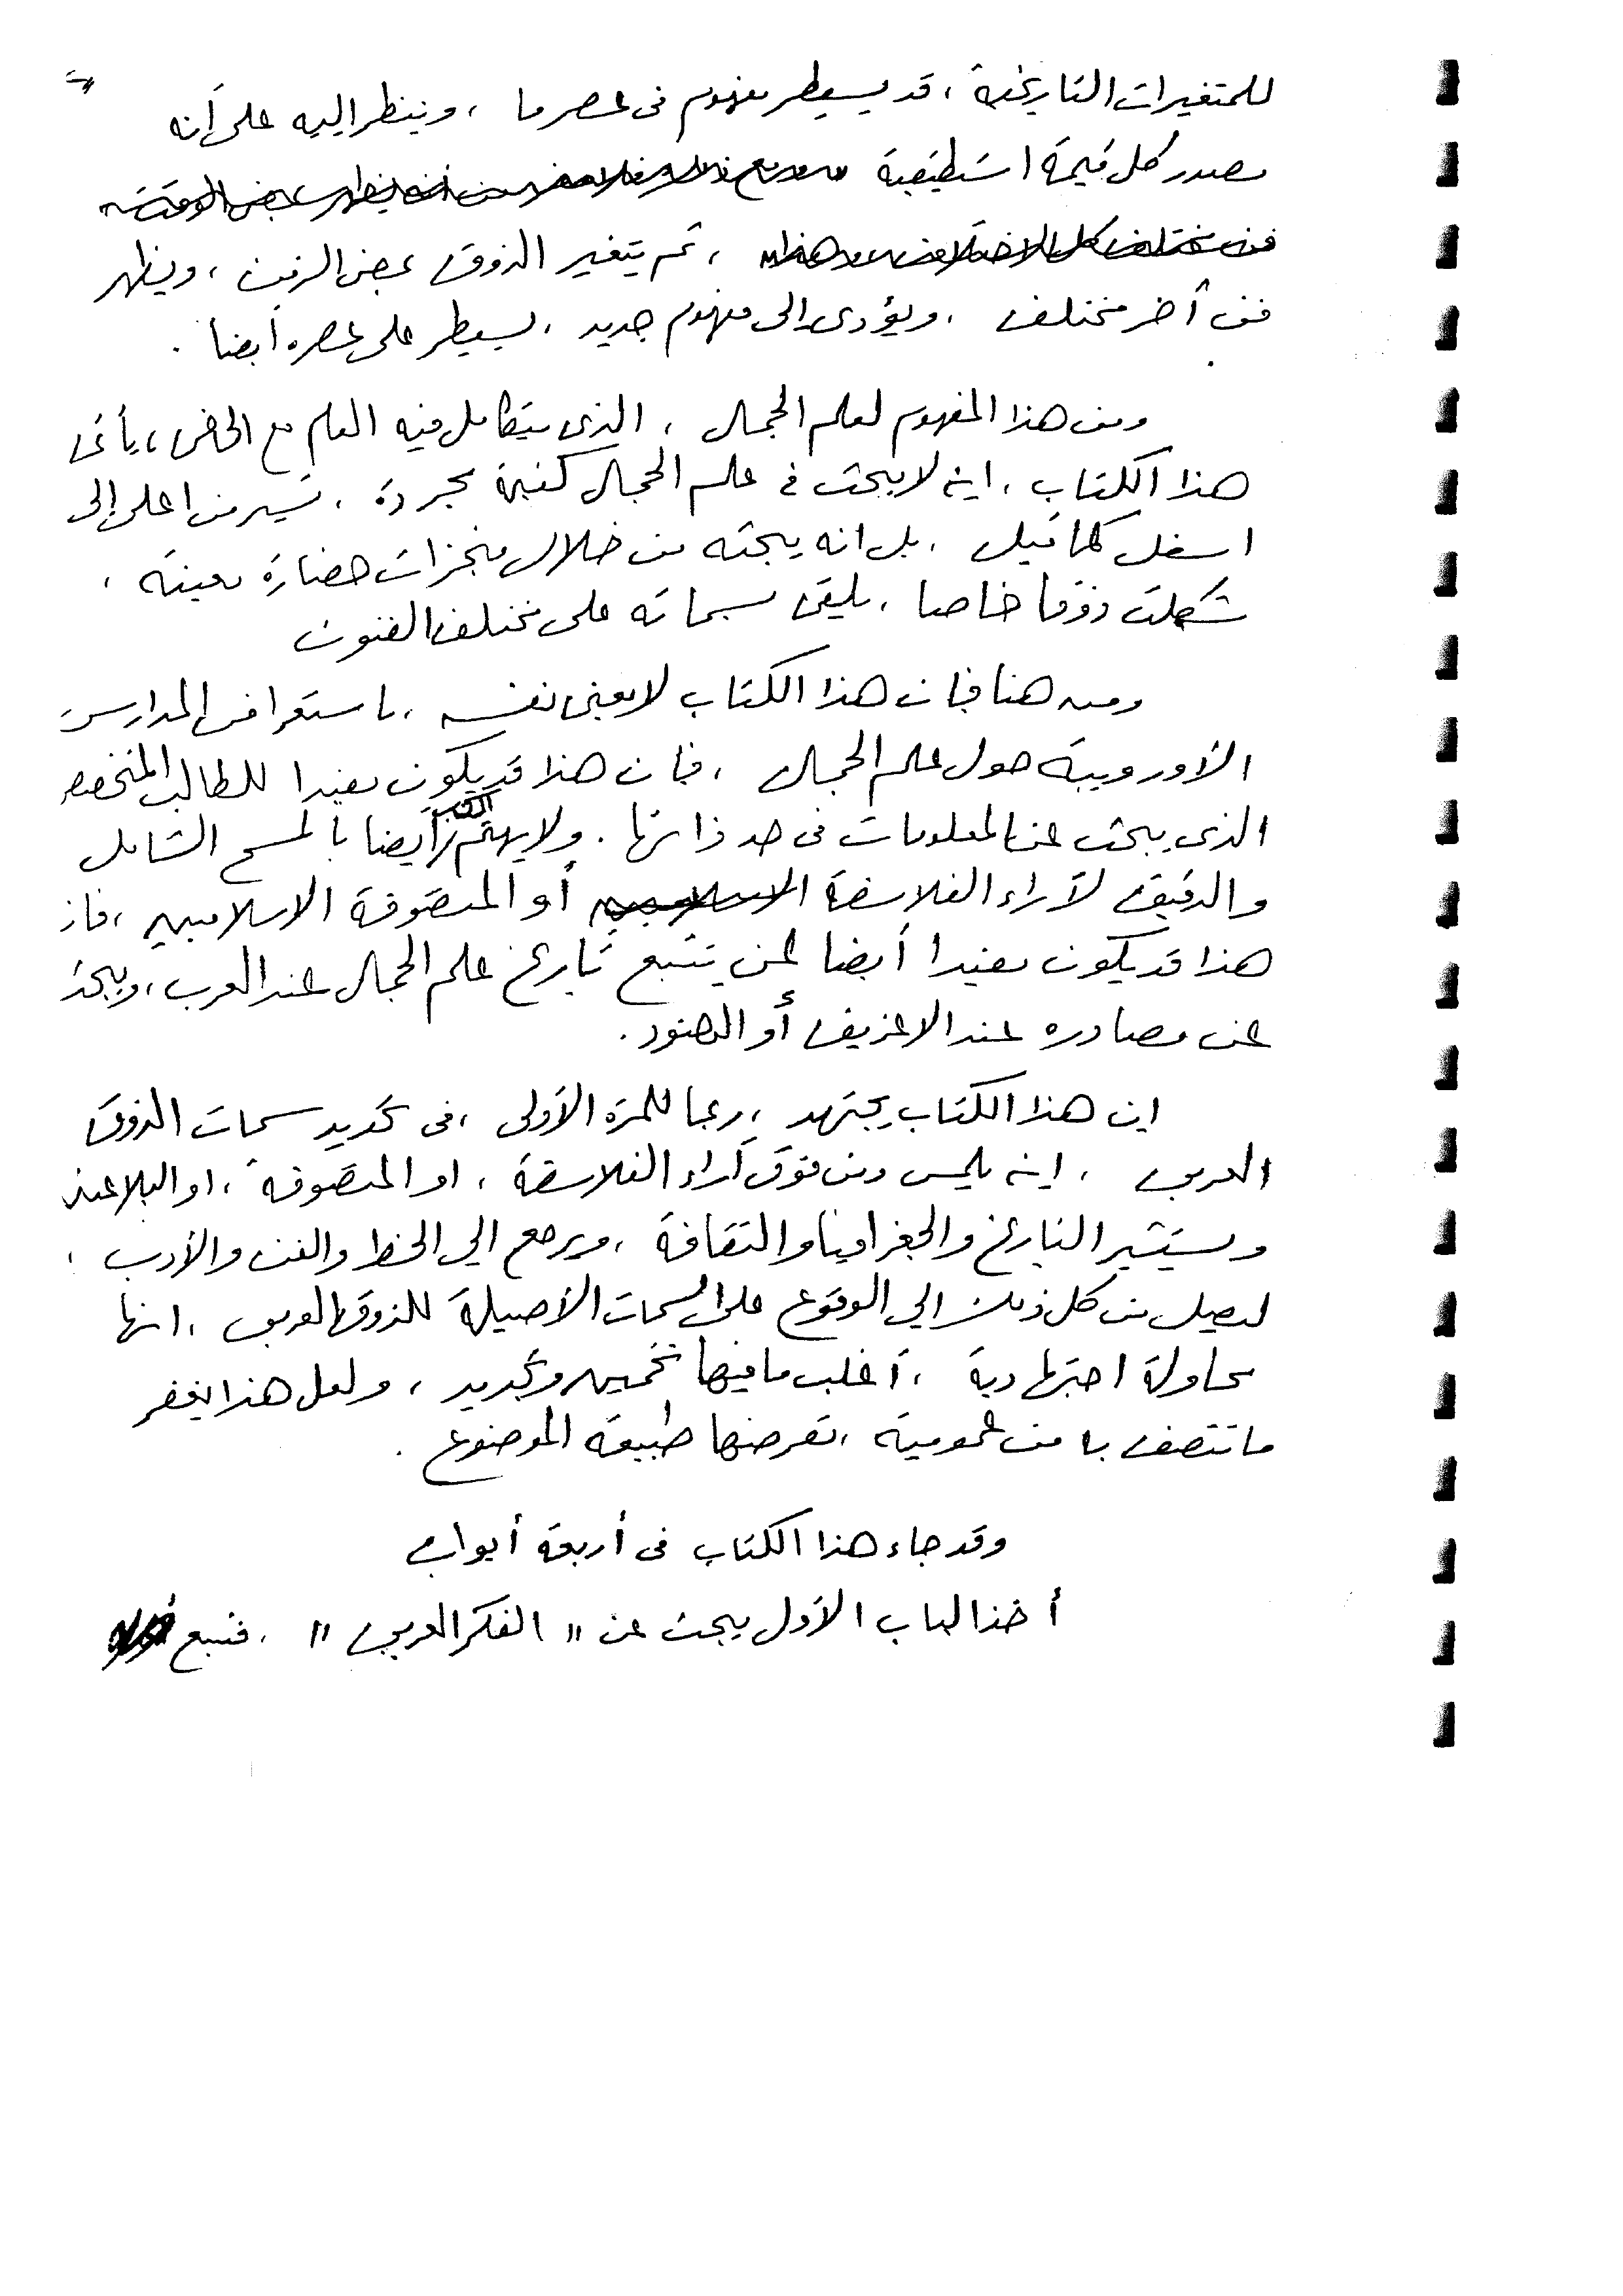 للمتغيرات التاريخية ، قد يسيطر مفهوم فى عصر ما ، وينظر اليه على أنه
مصدر كل قيمة استطيقية
، ثم يتغير الذوق بمضى الزمن ، ويظهر
فن آخر مختلف ، ويؤدى الى مفهوم جديد ، يسيطر على عصره أيضا .
ومن هذا المفهوم لعلم الجمال ، الذى يتكامل فيه العام مع الخاص ، يأتى
هذا الكتاب ، انه لا يبحث فى علم الجمال كقيمة مجردة ، تسير من اعلى إلى
اسفل كما قيل ، بل انه يبحثه من خلال منجزات حضارة معينة ،
شكلت ذوقا خاصا ، يلقى سماته على مختلف الفنون
ومن هنا فإن هذا الكتاب لا يعنى نفسه ، باستعراض المدارس
الأوروبية حول علم الجمال ، فإن هذا قد يكون مفيدا للطالب المتخصص
الذى يبحث عن المعلومات فى حد ذاتها . ولا يهتم الكتاب أيضا بالمسح الشامل
والدقيق لآراء الفلاسفة الاسلاميين أو المتصوفة الاسلاميين ، فان
هذا قد يكون مفيدا أيضا لمن يتتبع تاريخ علم الجمال عند العرب ، ويبحث
عن مصادره عند الاغريق أو الهنود .
ان هذا الكتاب يجتهد ، ربما للمرة الأولى ، فى تحديد سمات الذوق
العربى ، انه يلمس ومن فوق آراء الفلاسفة ، او المتصوفة ، او البلاغيين
ويستشير التاريخ والجغرافيا والثقافة ، ويرجع الى الخط والفن والأدب ،
ليصل من كل ذلك إلى الوقوع على السمات الأصيلة للذوق العربى ، انها
محاولة اجتهادية ، أغلب ما فيها تخمين وتجديد ، ولعل هذا يغفر
ما تتصف به من عمومية ، تفرضها طبيعة الموضوع .
وقد جاء هذا الكتاب فى أربعة أبواب
أخذ الباب الأول يبحث عن " الفكر العربى " ، فتتبع